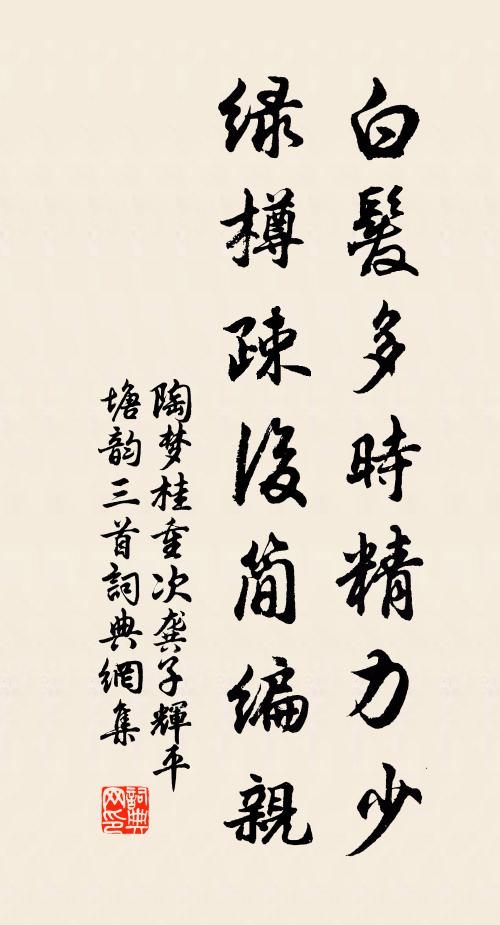 白髮多時精力少
綠樽疎後简编親
陶梦桂重次龚子輝平
塘韵三首詞典網集
詞典
网印